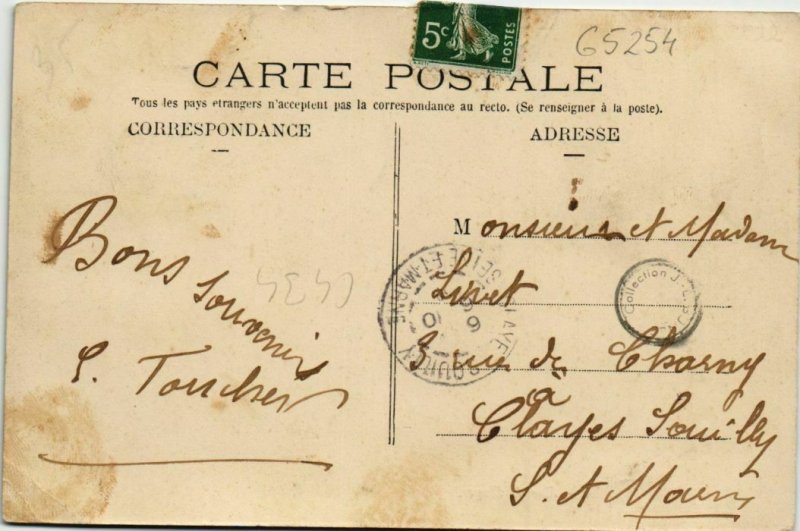 5c POSTES
65254
CARTE POSTALE
Tous les pays etrangers n'acceptent pas la correspondance au recto. (Se renseigner à la poste).
CORRESPONDANCE
ADRESSE
Bons Souvenirs
Monsieur et Madame
Livet
3 rue de Charny
à
Clayes Souilly
S. et Marne
SEINE-ET-MARNE
SOUILLY
Collection J.-L.